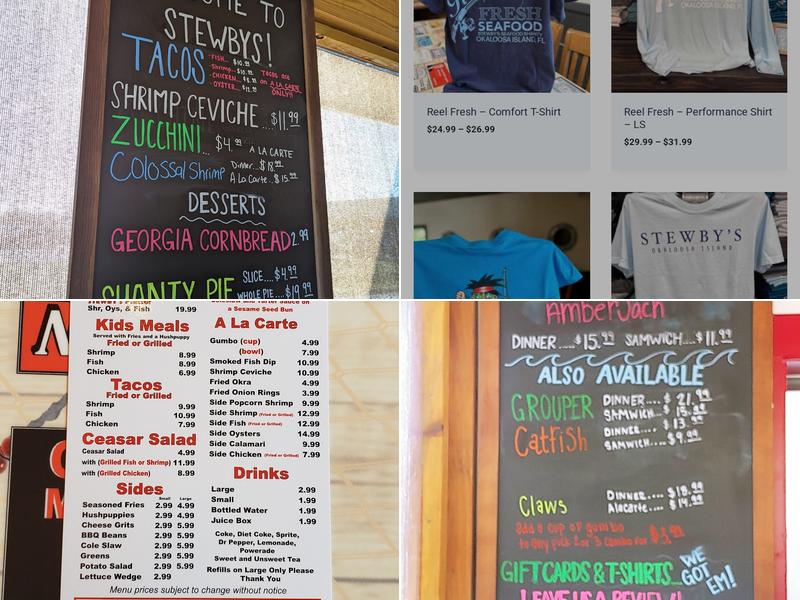 TO
STEWBYS!
TACOS
FISH... $10.99
Shrimp... $10.99
CHICKEN... $8.99
OYSTER... $12.99
TACOS are
on A LA CARTE
ONLY!!
SHRIMP CEVICHE....$11.99
ZUCCHINI... $4.99 A LA CARTE
Colossal Shrimp
Dinner...$18.99
A La Carte..$15.99
DESSERTS
GEORGIA CORNBREAD 2.99
SHANTY PIE
SLICE....$4.99
WHOLE PIE...$19.99
FRESH
SEAFOOD
STEWBY'S SEAFOOD SHANTY
OKALOOSA ISLAND, FL
Reel Fresh – Comfort T-Shirt
$24.99 – $26.99
OKALOOSA ISLAND, FL
Reel Fresh – Performance Shirt
– LS
$29.99 – $31.99
STEWBY'S
OKALOOSA ISLAND
Shr, Oys, & Fish 19.99
a Sesame Seed Bun
Kids Meals
Served with Fries and a Hushpuppy
Fried or Grilled
Shrimp 8.99
Fish 8.99
Chicken 6.99
Tacos
Fried or Grilled
Shrimp 9.99
Fish 10.99
Chicken 7.99
Ceasar Salad
Ceasar Salad 4.99
with (Grilled Fish or Shrimp) 11.99
with (Grilled Chicken) 8.99
Sides
Small Large
Seasoned Fries 2.99 4.99
Hushpuppies 2.99 4.99
Cheese Grits 2.99 5.99
BBQ Beans 2.99 5.99
Cole Slaw 2.99 5.99
Greens 2.99 5.99
Potato Salad 2.99 5.99
Lettuce Wedge 2.99
A La Carte
Gumbo (cup) 4.99
(bowl) 7.99
Smoked Fish Dip 10.99
Shrimp Ceviche 10.99
Fried Okra 4.99
Fried Onion Rings 3.99
Side Popcorn Shrimp 9.99
Side Shrimp (Fried or Grilled) 12.99
Side Fish (Fried or Grilled) 12.99
Side Oysters 14.99
Side Calamari 9.99
Side Chicken (Fried or Grilled) 7.99
Drinks
Large 2.99
Small 1.99
Bottled Water 1.99
Juice Box 1.99
Coke, Diet Coke, Sprite,
Dr Pepper, Lemonade,
Powerade
Sweet and Unsweet Tea
Refills on Large Only Please
Thank You
Menu prices subject to change without notice
AmberJack
DINNER....$15.99 SAMWICH....$11.99
ALSO AVAILABLE
GROUPER
DINNER.... $21.99
SAMWICH.... $15.99
CatFish
DINNER... $13.99
SAMWICH.... $9.99
Claws
DINNER.... $18.99
Alacarte.... $14.99
Add a cup of gumbo
to any pick 2 or 3 combo for $3.99
GIFT CARDS & T-SHIRTS... WE
GOT
EM!
LEAVE US A REVIEW!